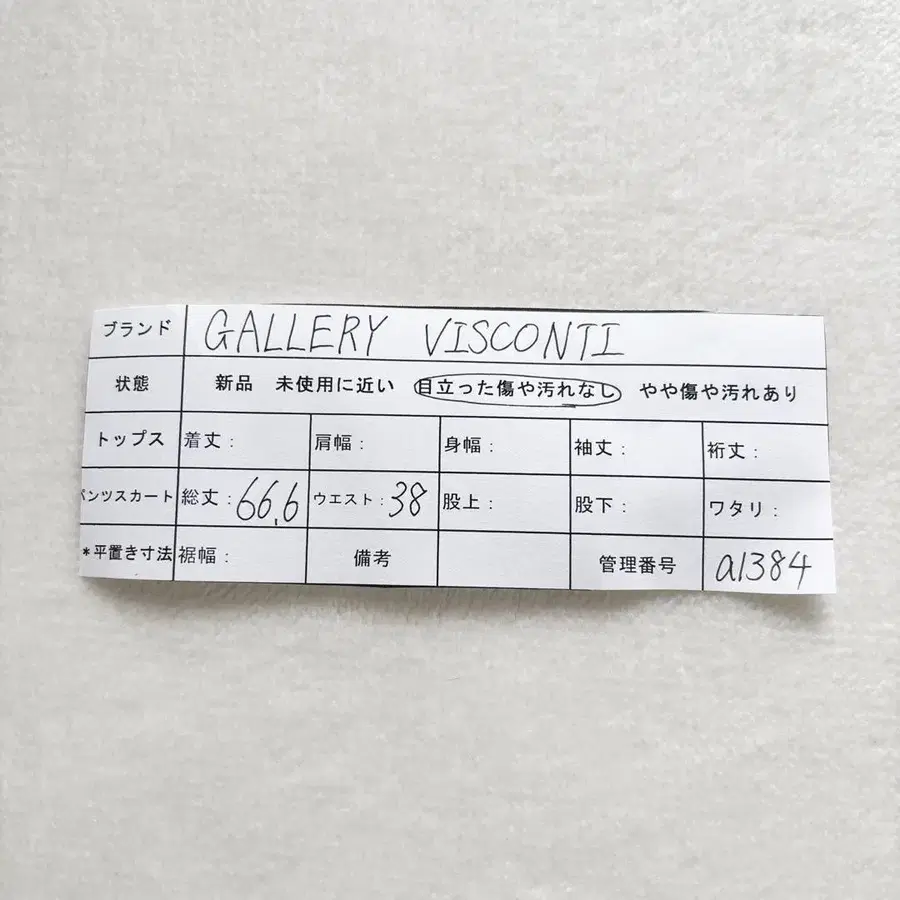 ブランド GALLERY VISCONTI
状態 新品 未使用に近い 目立った傷や汚れなし やや傷や汚れあり
トップス 着丈： 肩幅： 身幅： 袖丈： 裄丈：
パンツスカート 総丈：66.6 ウエスト：38 股上： 股下： ワタリ：
*平置き寸法 裾幅： 備考 管理番号 a1384